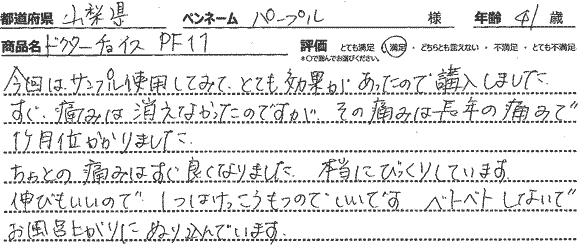 都道府県 山梨県 ペンネーム パープル 様 年齢 41 歳
商品名 ドクターチョイス PF11 評価 とても満足・満足・どちらとも言えない・不満足・とても不満足
*○で囲んでお選びください。
今回は、サンプル使用してみて、とても効果があったので購入しました
すぐ、痛みは消えなかったのですが、その痛みは長年の痛みで
1ケ月位かかりました。
ちょっとの痛みはすぐ良くなりました。本当にびっくりしています。
伸びもいいので、1つはけっこうもつのでいいです ベトベトしてないで
お風呂上がりにぬり込んでいます。